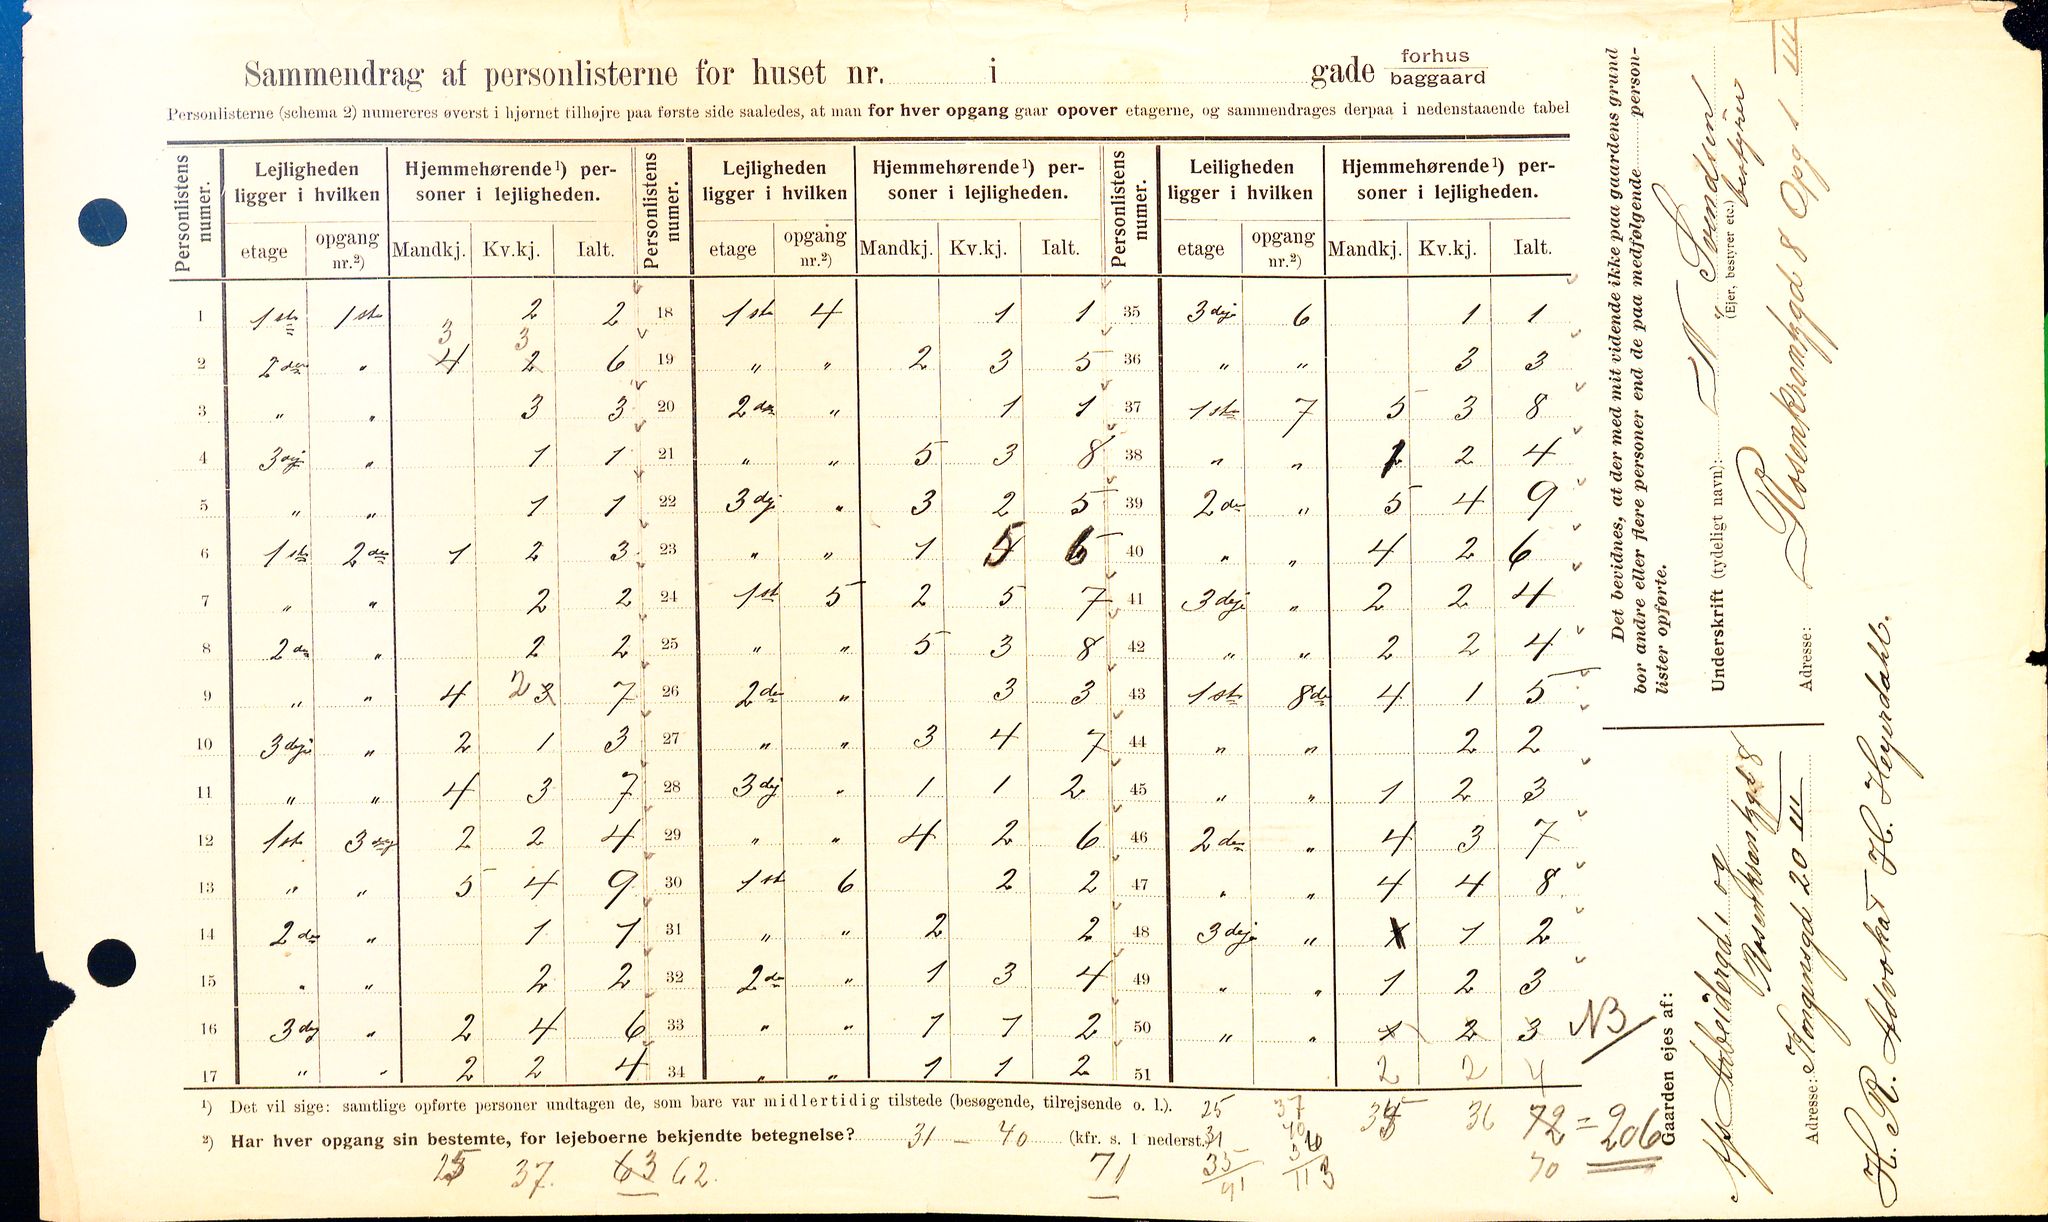 Sammendrag af personlisterne for huset nr. i gade forhus baggaard
Personlisterne (schema 2) numereres øverst i hjørnet tilhøjre paa første side saaledes, at man for hver opgang gaar opover etagerne, og sammendrages derpaa i nedenstaaende tabel
Personlistens numer. Lejligheden ligger i hvilken Hjemmehørende¹) personer i lejligheden. Personlistens numer. Lejligheden ligger i hvilken Hjemmehørende¹) personer i lejligheden. Personlistens numer. Leiligheden ligger i hvilken Hjemmehørende¹) personer i lejligheden.
etage opgang nr.²) Mandkj. Kv.kj. Ialt. etage opgang nr.²) Mandkj. Kv.kj. Ialt. etage opgang nr.²) Mandkj. Kv.kj. Ialt.
1 1ste 1ste 2 2 18 1ste 4 1 1 35 3dje 6 1 1
3 3
2 2den " 4 2 6 19 " " 2 3 5 36 " " 3 3
3 " " 3 3 20 2den " 1 1 37 1ste 7 5 3 8
4 3dje " 1 1 21 " " 5 3 8 38 " " 2 2 4
5 " " 1 1 22 3dje " 3 2 5 39 2den " 5 4 9
6 1ste 2den 1 2 3 23 " " 1 5 6 40 " " 4 2 6
7 " " 2 2 24 1ste 5 2 5 7 41 3dje " 2 2 4
8 2den " 2 2 25 " " 5 3 8 42 " " 2 2 4
9 " " 4 2 3 7 26 2den " 3 3 43 1ste 8de 4 1 5
10 3dje " 2 1 3 27 " " 3 4 7 44 " " 2 2
11 " " 4 3 7 28 3dje " 1 1 2 45 " " 1 2 3
12 1ste 3dje 2 2 4 29 " " 4 2 6 46 2den " 4 3 7
13 " " 5 4 9 30 1ste 6 2 2 47 " " 4 4 8
14 2den " 1 1 31 " " 2 2 48 3dje " 1 1 2
15 " " 2 2 32 2den " 1 3 4 49 " " 1 2 3
16 3dje " 2 4 6 33 " " 1 1 2 50 " " 1 2 3 NB
17 " " 2 2 4 34 " " 1 1 2 51 2 2 4
¹) Det vil sige: samtlige opførte personer undtagen de, som bare var midlertidig tilstede (besøgende, tilrejsende o. l.). 25 37 35 36 72 = 206
²) Har hver opgang sin bestemte, for lejeboerne bekjendte betegnelse? 31 - 40 (kfr. s. 1 nederst.) 31 40
25 37. 63 62. 71 35 36 70
91 113
Det bevidnes, at der med mit vidende ikke paa gaardens grund bor andre eller flere personer end de paa medfølgende personlister opførte.
Underskrift (tydeligt navn): N Svendsen
(Ejer, bestyrer etc.) bestyrer
Adresse: Rosenkrantzgd 8 Opg 1 III
Gaarden ejes af:
A/S Arbeidergd. og
Rosenkrantzgd 8
Adresse: Kongensgd 20 III
H. R. Advokat H. Heyerdahl.